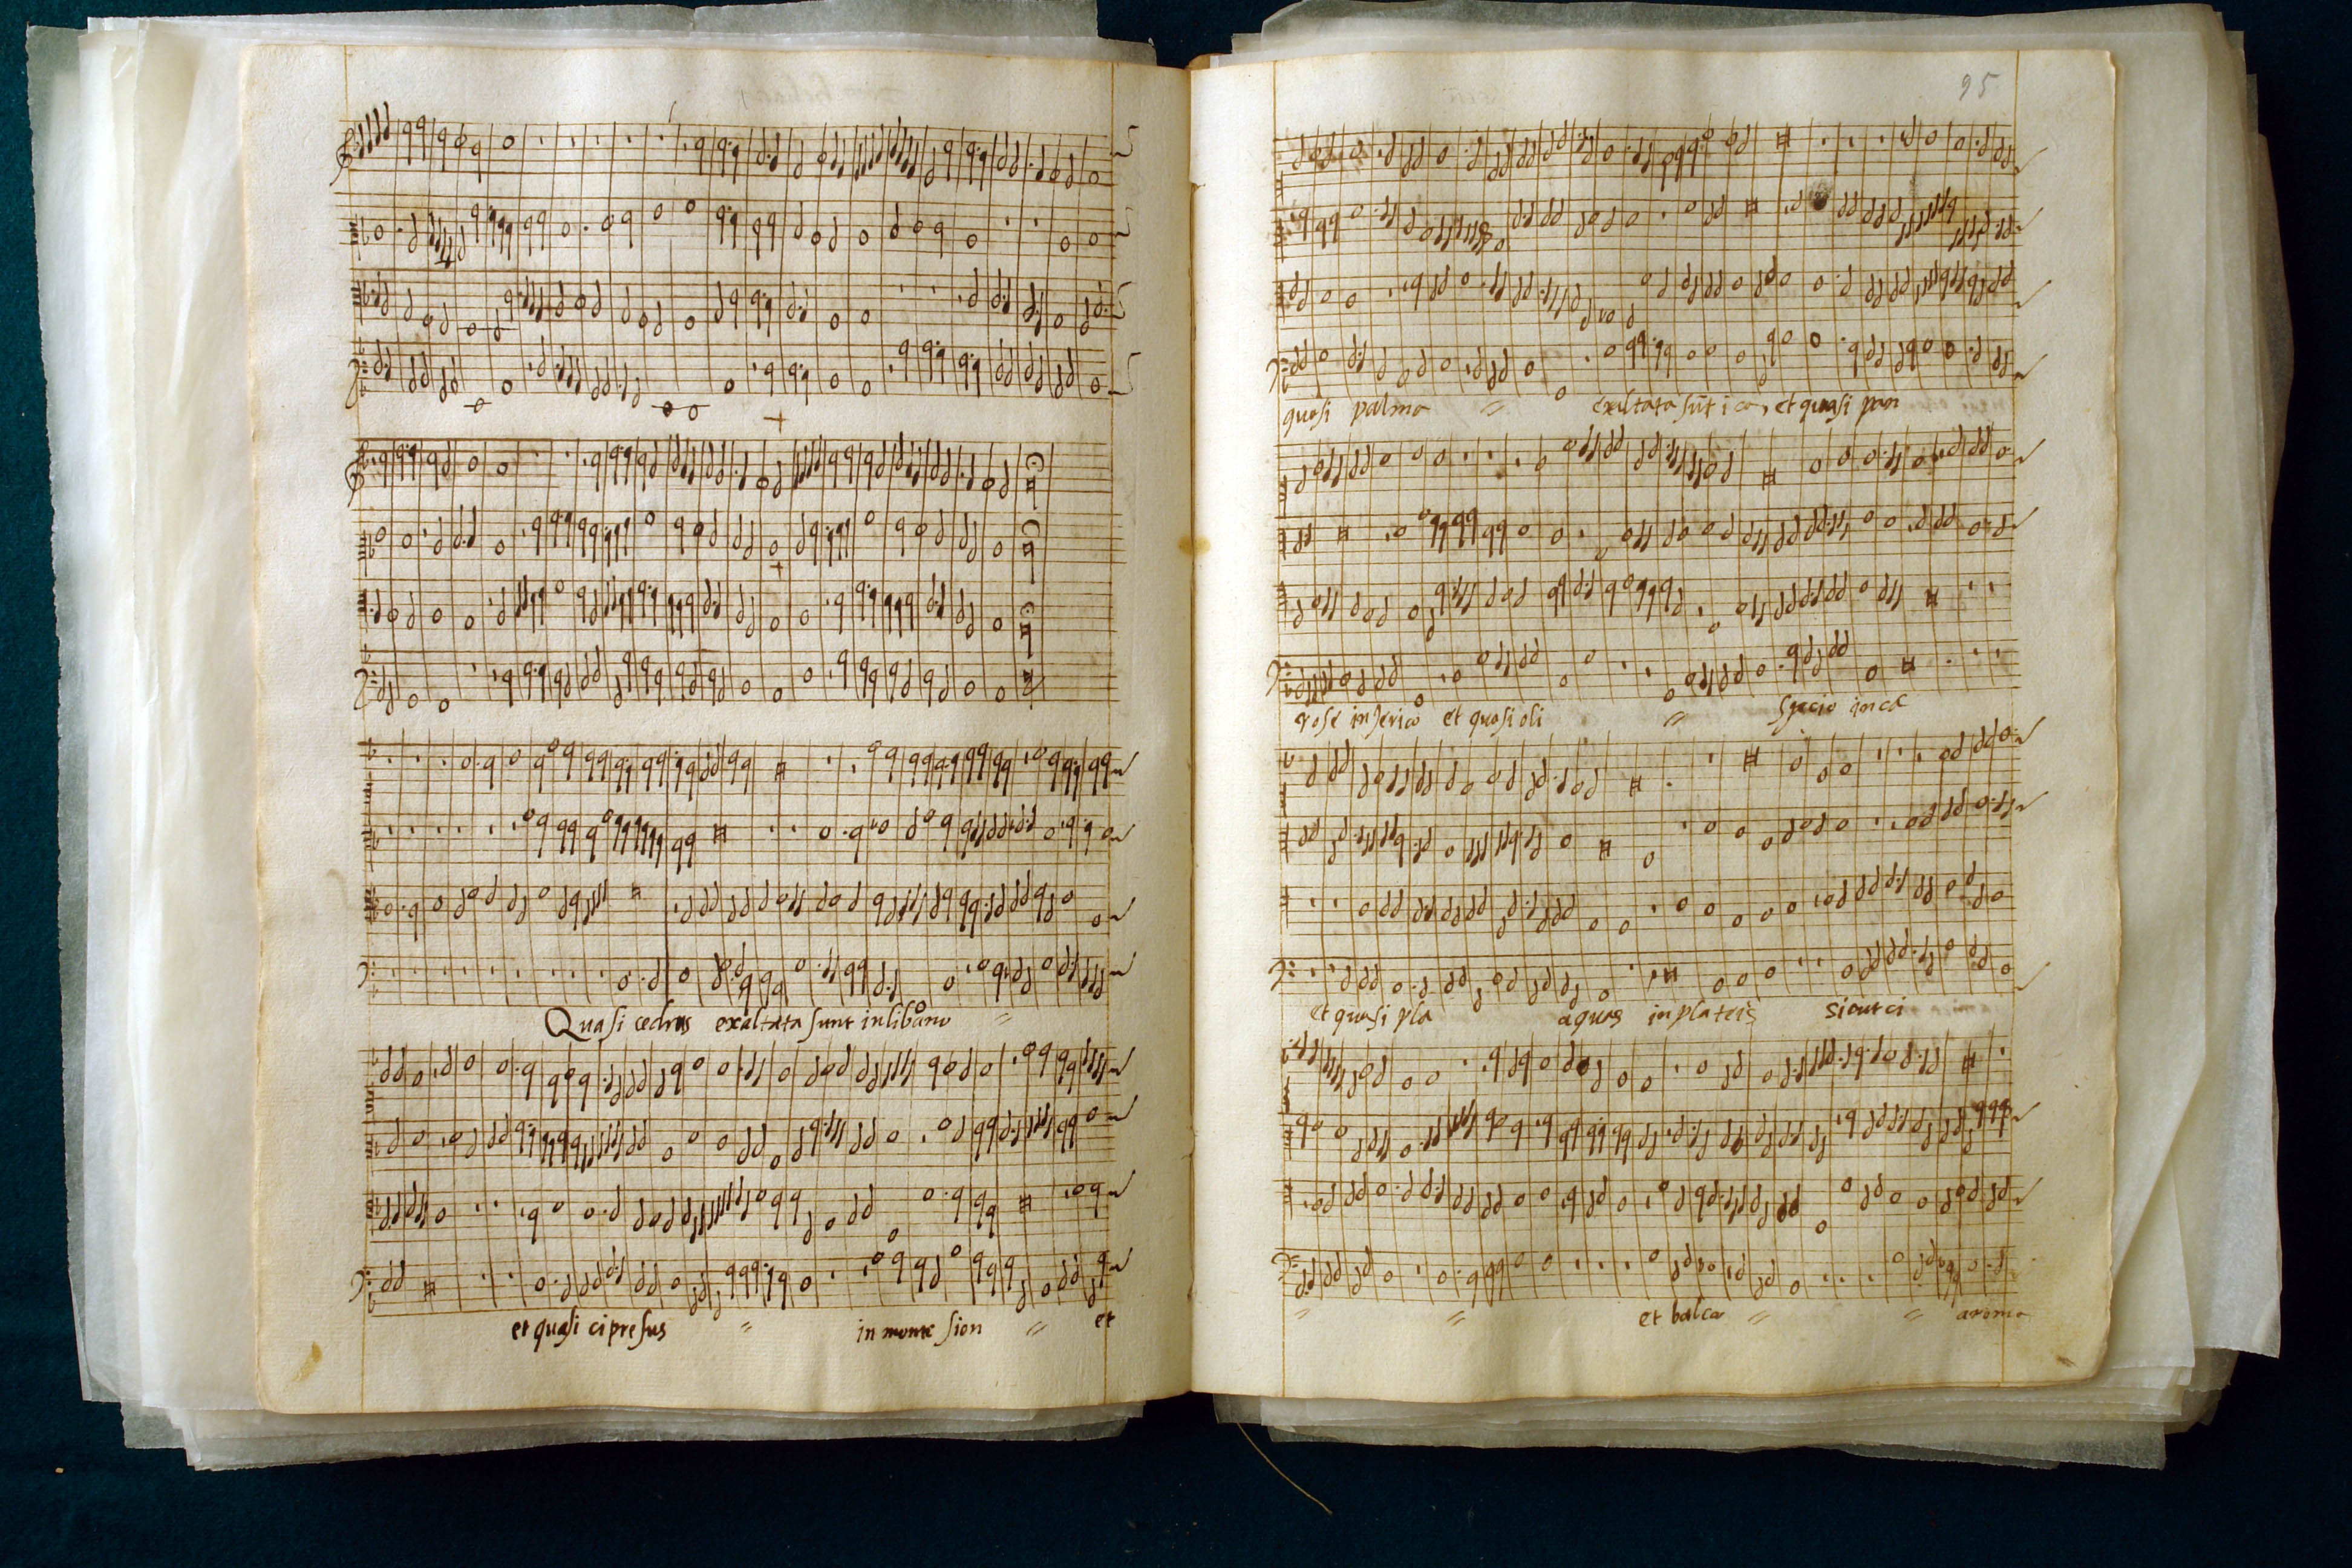 Quasi cedrus exaltata sunt inlibano
et quasi cipresus in monte sion et
95
quasi palma exaltata sūt i ca, et quasi plan
rose inJerico et quasi oli specio inca
et quasi pla aquas inplateis sicut ci
et balca aroma